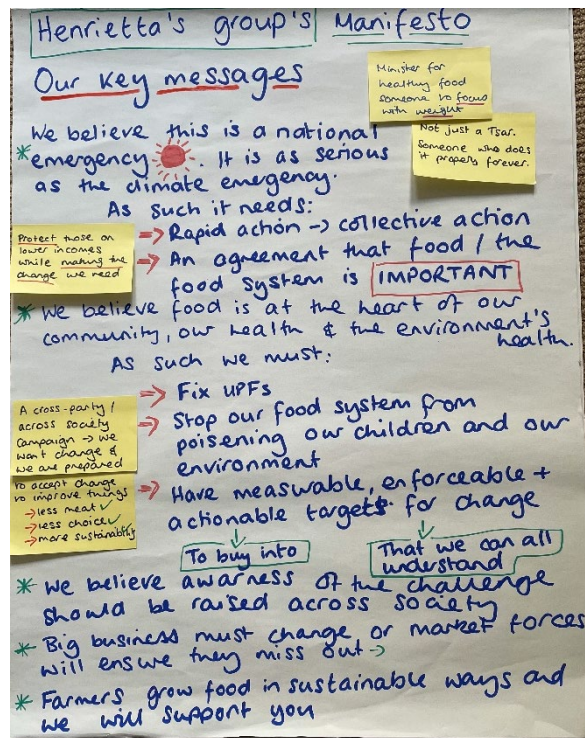 Henrietta's group's Manifesto
Our key messages
Minister for
healthy food
someone to focus
with weight
Not just a Tsar.
Someone who does
it properly forever.
We believe this is a national
* emergency. It is as serious
as the climate emergency.
As such it needs:
Protect those on
lower incomes
while making the
change we need
⇒ Rapid action → collective action
⇒ An agreement that food / the
food system is IMPORTANT
* We believe food is at the heart of our
community, our health & the environment's
health.
As such we must:
⇒ Fix UPFs
A cross-party /
across society
campaign → we
want change &
we are prepared
to accept change
to improve things
→ less meat ✓
→ less choice ✓
→ more sustainability
⇒ Stop our food system from
poisening our children and our
environment
⇒ Have measurable, enforceable +
actionable targets for change
To buy into
That we can all
understand
* We believe awareness of the challenge
should be raised across society
* Big business must change or market forces
will ensure they miss out →
* Farmers grow food in sustainable ways and
we will support you